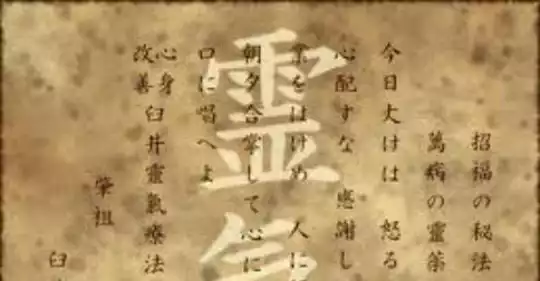 招福の秘法
萬病の靈薬
今日丈けは 怒る
心配すな 感謝し
業をはけめ 人に
朝夕合掌して心に
口に唱へよ
心身
改善 臼井靈氣療法
肇祖
臼
靈氣